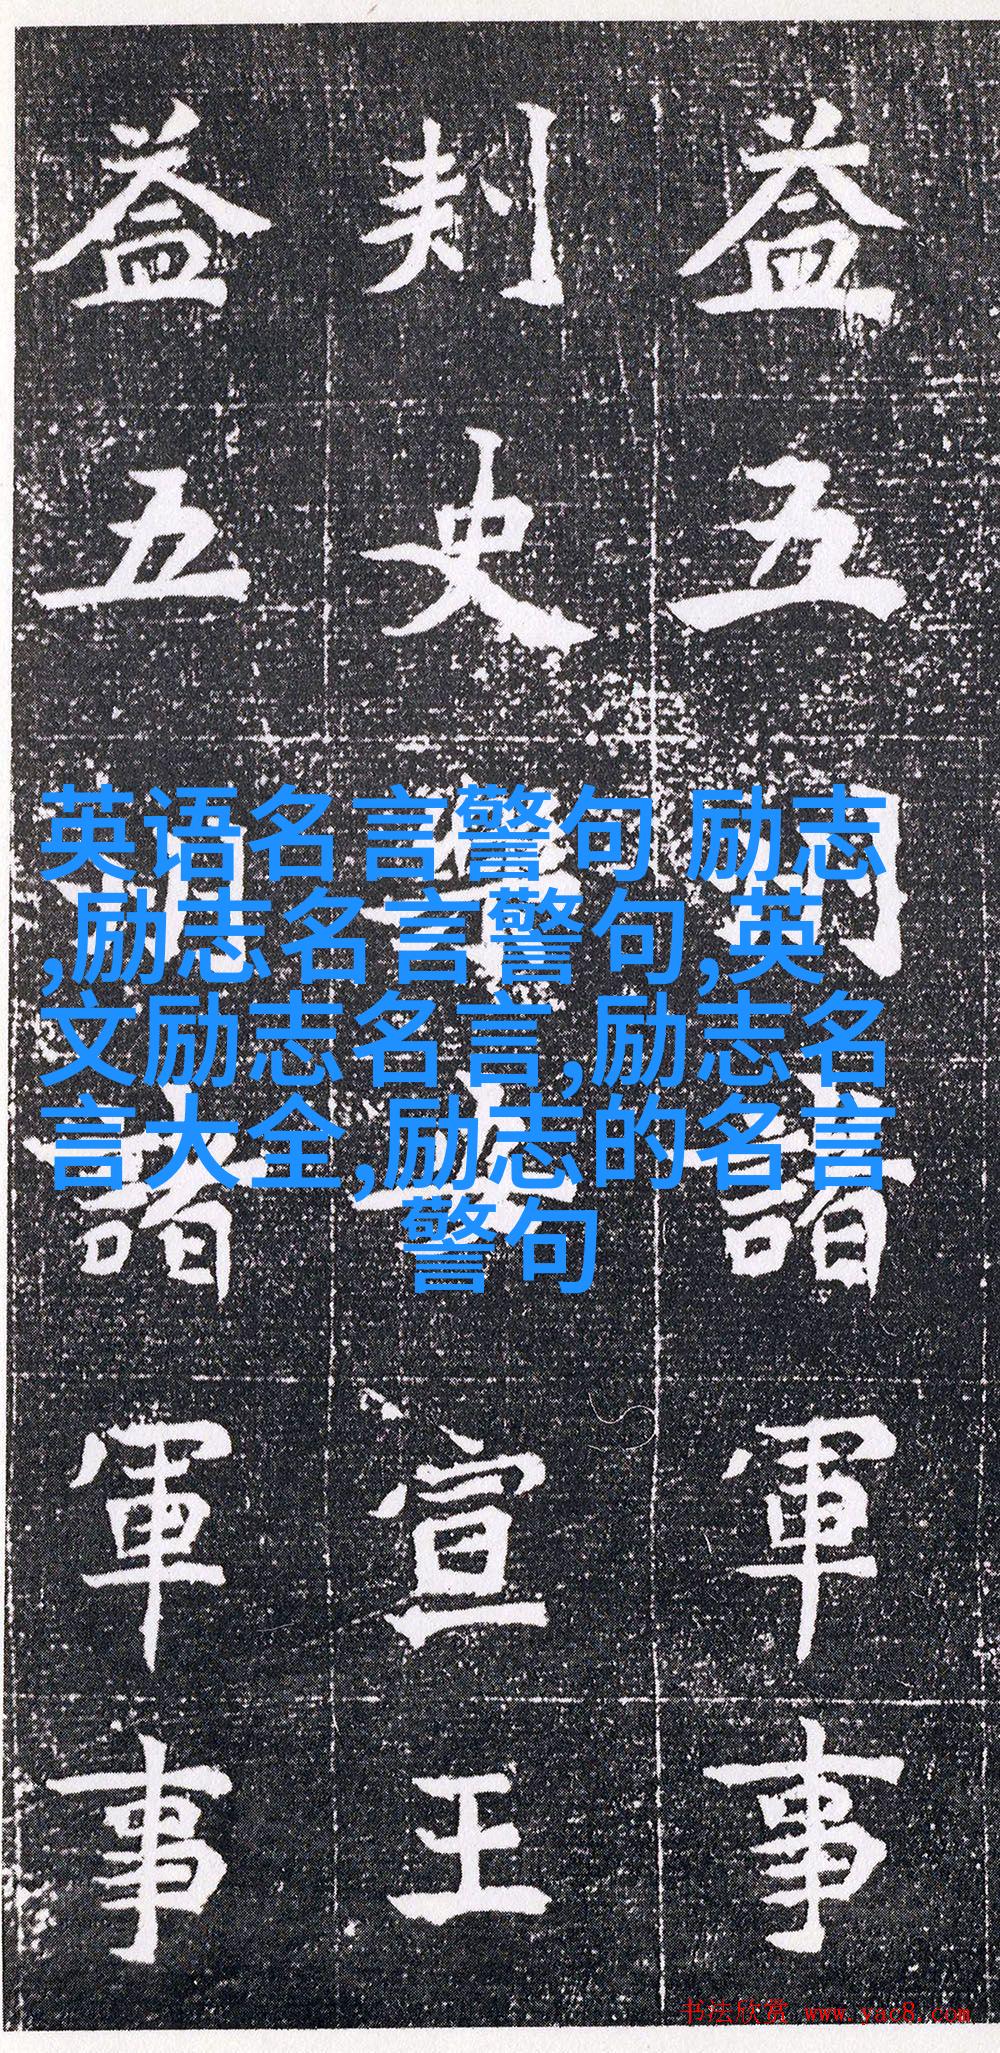 益五諸軍事
刾史宣王
益五諸軍事
英语名言警句 励志
,励志名言警句,英
文励志名言,励志名
言大全,励志的名言
警句
书法欣赏 www.yac8.com